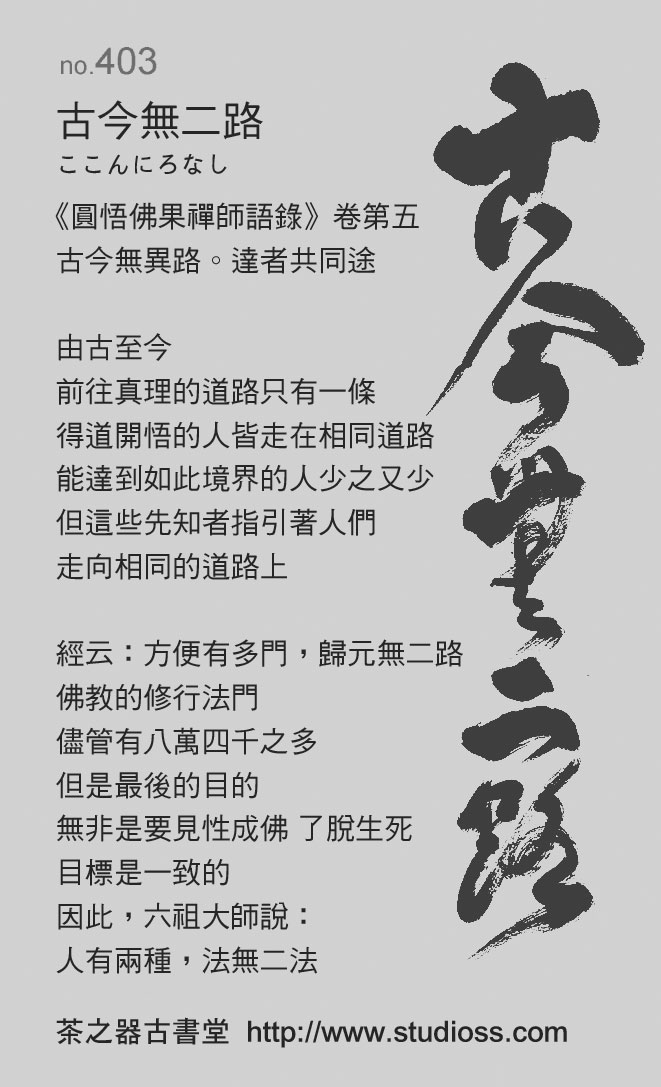 no.403
古今無二路
ここんにろなし
《圓悟佛果禪師語錄》卷第五
古今無異路。達者共同途
由古至今
前往真理的道路只有一條
得道開悟的人皆走在相同道路
能達到如此境界的人少之又少
但這些先知者指引著人們
走向相同的道路上
經云：方便有多門，歸元無二路
佛教的修行法門
儘管有八萬四千之多
但是最後的目的
無非是要見性成佛 了脫生死
目標是一致的
因此，六祖大師說：
人有兩種，法無二法
茶之器古書堂 http://www.studioss.com
古今無二路